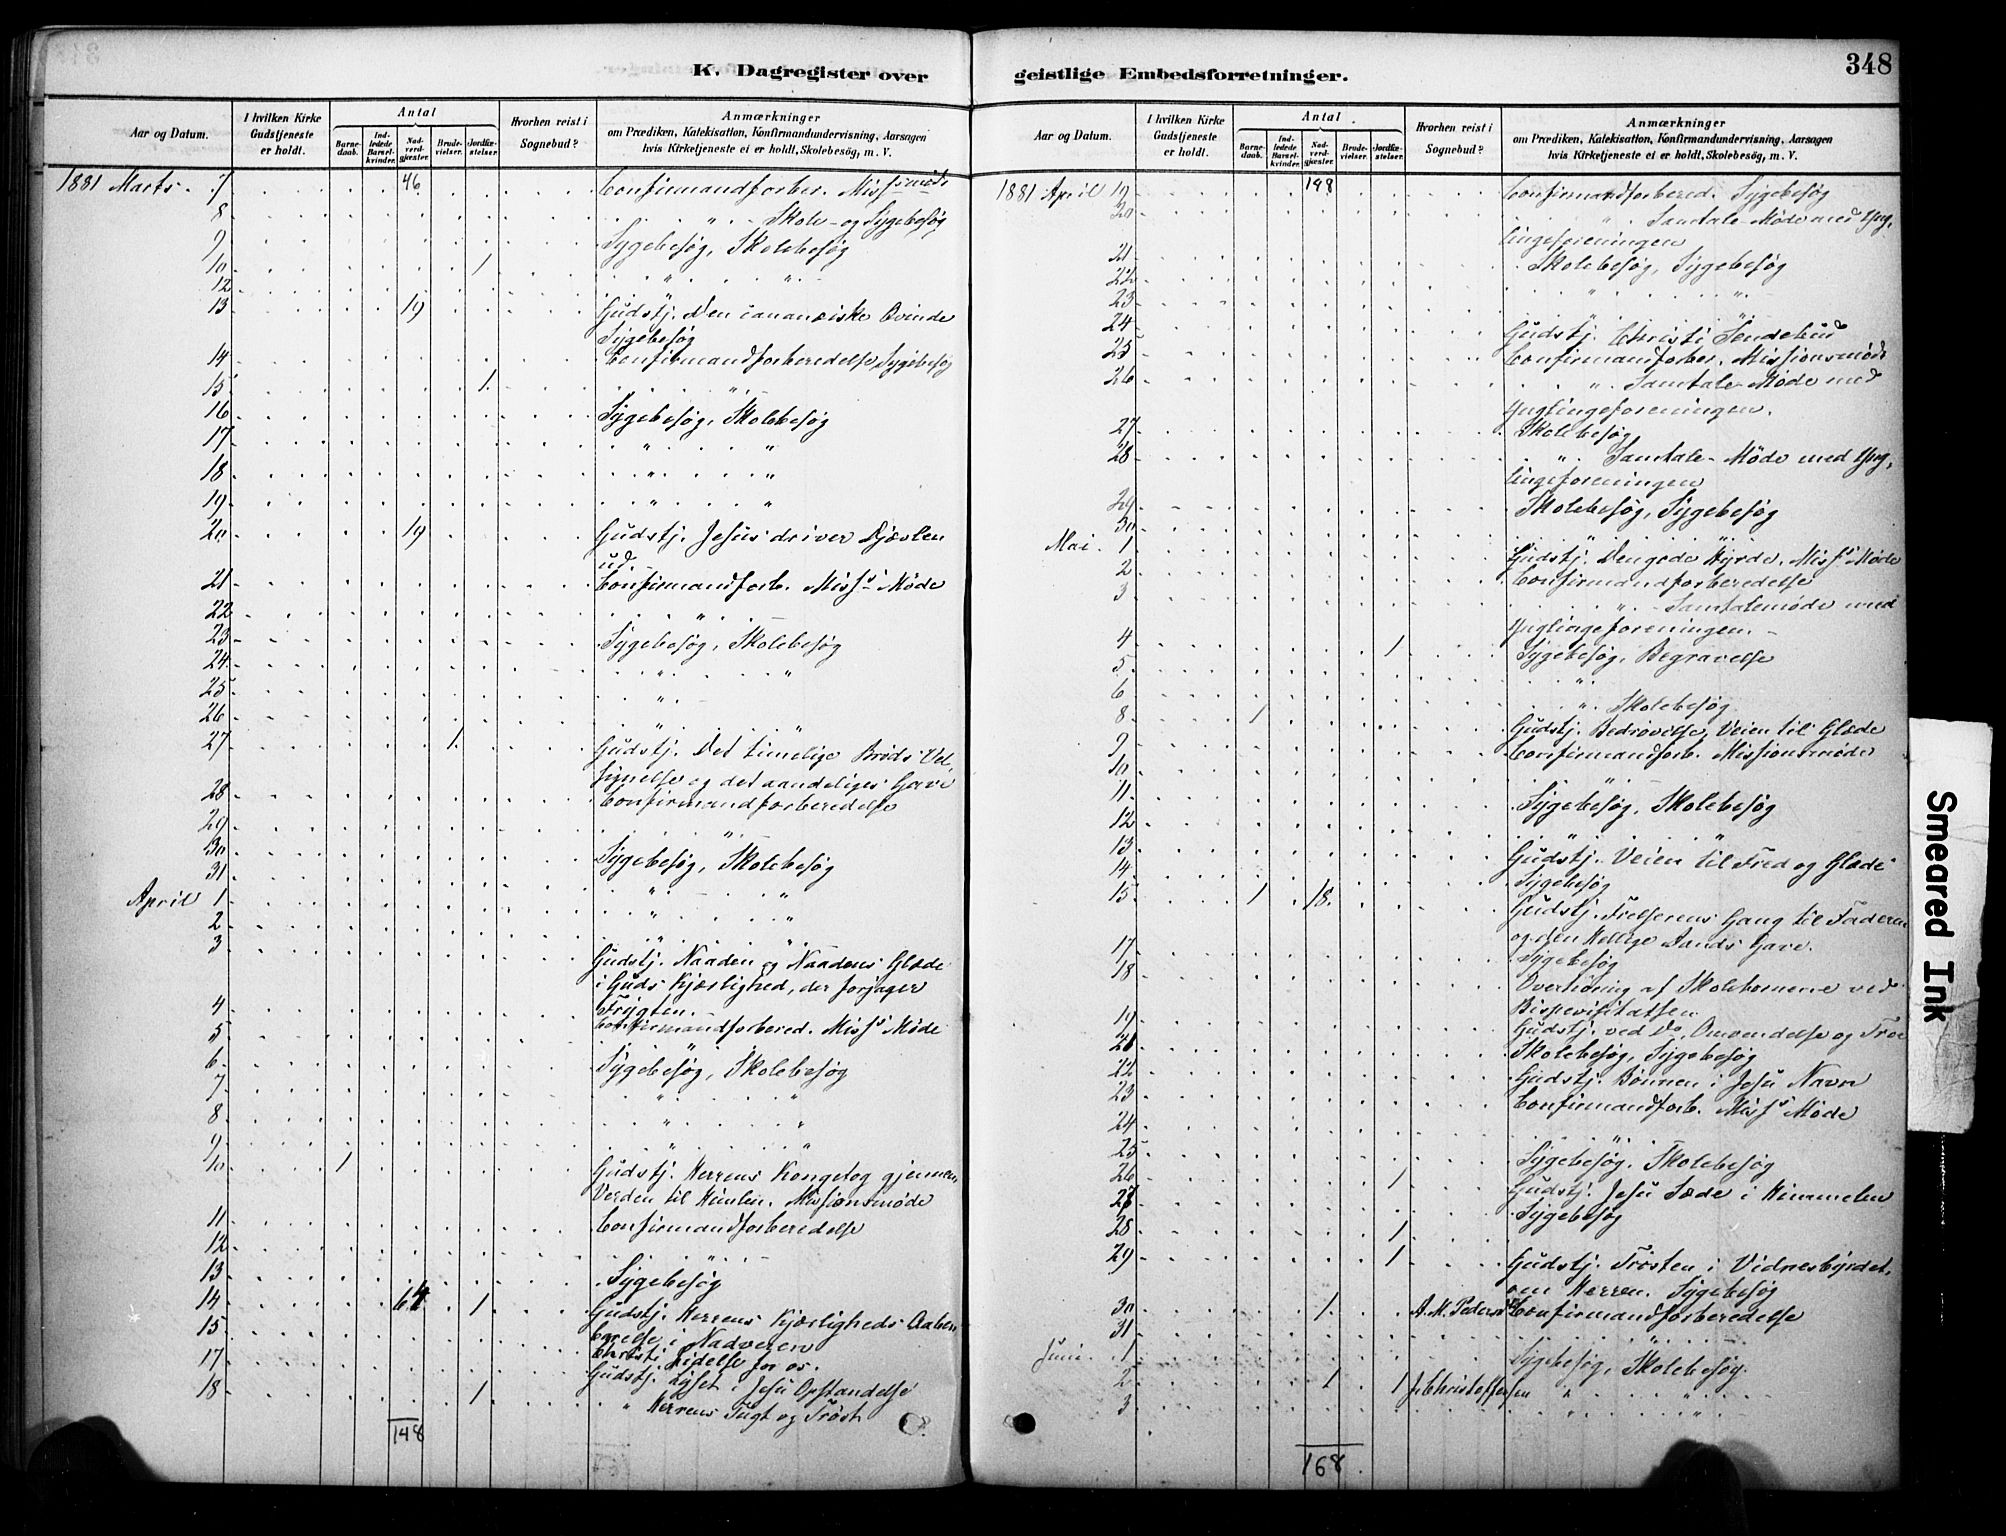 K. Dagregister over geistlige Embedsforretninger.
348
Aar og Datum.
I hvilken Kirke Gudstjeneste er holdt.
Antal
Barnedaab.
Indledede Barselkvinder.
Nadverdgjæster.
Brudevielser.
Jordfæstelser.
Hvorhen reist i Sognebud?
Anmærkninger
om Prædiken, Katekisation, Konfirmandundervisning, Aarsagen
hvis Kirketjeneste ei er holdt, Skolebesøg, m. V.
1881 Marts. 7 46 Confirmandforber. Miss.møde
8 " Skole- og Sygebesøg
9 Sygebesøg, Skolebesøg
10 1 " "
12
13 19 Gudstj. Den cananæiske Qvinde
Sygebesøg
14 Confirmandforberedelse, Sygebesøg
15 1. "
16 Sygebesøg, Skolebesøg
17 " "
18 " "
19 " "
20 19 Gudstj. Jesus driver Djævlen
ud.
21 Confirmandforb. Miss: Møde
22 "
23 Sygebesøg, Skolebesøg
24 " "
25 "
26 " "
27 1. Gudstj. Det timelige Brøds Vel-
signelse og det aandeliges Gave
28 Confirmandforberedelse
29 "
30 Sygebesøg, Skolebesøg
31 " "
April 1 " "
2 " "
3 Gudstj. Naaden og Naadens Glæde
i Guds Kjærlighed, der forjager
Frygten.
4 Confirmandforbered. Miss: Møde
5 "
6 Sygebesøg, Skolebesøg
7 " "
8 " "
9 " "
10 1 Gudstj. Herrens Kongetog gjennem
Verden til Himlen. Missionsmøde
11 Confirmandforberedelse
12 "
13 Sygebesøg
14 64 1 Gudstj. Herrens Kjærligheds Aaben-
barelse i Nadveren
15 Christi Lidelse for os.
17 Gudstj. Lyset i Jesu Opstandelse
18 1 " Herrens Tugt og Trøst
148
Aar og Datum.
I hvilken Kirke Gudstjeneste er holdt.
Antal
Barnedaab.
Indledede Barselkvinder.
Nadverdgjæster.
Brudevielser.
Jordfæstelser.
Hvorhen reist i Sognebud?
Anmærkninger
om Prædiken, Katekisation, Konfirmandundervisning, Aarsagen
hvis Kirketjeneste ei er holdt, Skolebesøg, m. V.
1881 April 19 148 Confirmandforbered. Sygebesøg
20 " Samtale-Møde med Yng-
lingeforeningen
21 Skolebesøg, Sygebesøg
22 " "
23 "
24 Gudstj. Christi Sendebud
25 Confirmandforber. Missionsmøde
26 " Samtale-Møde med
Ynglingeforeningen.
27 Skolebesøg
28 " Samtale-Møde med Yng-
lingeforeningen
29 Skolebesøg, Sygebesøg
30
Mai. 1 Gudstj. Den gode Hyrde. Miss: Møde
2 Confirmandforberedelse
3 " Samtalemøde med
Ynglingeforeningen.
4 1 Sygebesøg, Begravelse
5 "
6 " Skolebesøg
8 1 Gudstj. Bedrøvelse, Veien til Glæde
9 Confirmandforb. Missionsmøde
10 "
11 Sygebesøg, Skolebesøg
12 " "
13 Gudstj. Veien til Fred og Glæde
14 Sygebesøg
15 1 18. Gudstj. Frelserens Gang til Faderen
og den Hellige Aands Gave.
17 Sygebesøg
18 Overhøring af Skolebørnene ved
Bispevisitatsen
19 Gudstj. ved Do, Omvendelse og Troe
20 Skolebesøg, Sygebesøg
22 Gudstj. Bønnen i Jesu Navn
23 Confirmandforb. Miss: Møde
24 "
25 Sygebesøg. Skolebesøg
26 1 Gudstj. Jesu Sæde i Himmelen
27 Sygebesøg
28 1
29 1 Gudstj. Trøsten i Vidnesbyrdet
om Herren. Sygebesøg
30 1. A. M. Pedersen Confirmandforberedelse
31 "
Juni. 1 Sygebesøg, Skolebesøg
2 1 1 J. Christoffersen " "
3 " "
168
Smeared Ink